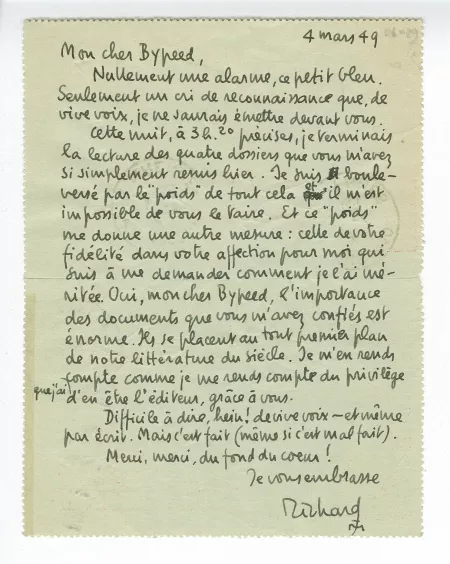 4 mars 49
Mon cher Bypeed,
Nullement une alarme, ce petit bleu.
Seulement un cri de reconnaissance que, de
vive voix, je ne saurais émettre devant vous.
Cette nuit, à 3h.20 précises, je terminais
la lecture des quatre dossiers que vous m'avez
si simplement remis hier. Je suis boule-
versé par le "poids" de tout cela et il m'est
impossible de vous le taire. Et ce "poids"
me donne une autre mesure : celle de votre
fidélité dans votre affection pour moi qui
suis à me demander comment je l'ai mé-
ritée. Oui, mon cher Bypeed, l'importance
des documents que vous m'avez confiés est
énorme. Ils se placent au tout premier plan
de notre littérature du siècle. Je m'en rends
compte comme je me rends compte du privilège
que j'ai d'en être l'éditeur, grâce à vous.
Difficile à dire, hein! de vive voix - et même
par écrit. Mais c'est fait (même si c'est mal fait).
Merci, merci, du fond du coeur !
Je vous embrasse
Richard